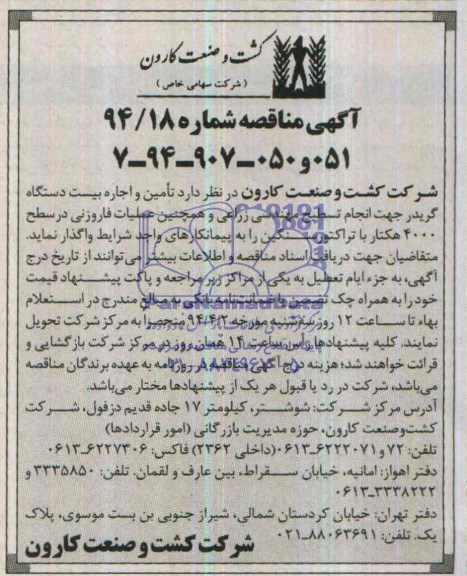 کشت و صنعت کارون
( شرکت سهامی خاص )
آگهی مناقصه شماره ۹۴/۱۸
۰۵۱ و ۰۵۰-۹۰۷-۹۴-۷
شرکت کشت و صنعت کارون در نظر دارد تأمین و اجاره بیست دستگاه
گریدر جهت انجام تسطیح مهندسی زراعی و همچنین عملیات فاروزنی در سطح
۴۰۰۰ هکتار با تراکتور سنگین را به پیمانکارهای واجد شرایط واگذار نماید.
متقاضیان جهت دریافت اسناد مناقصه و اطلاعات بیشتر می‌توانند از تاریخ درج
آگهی، به جز ایام تعطیل به یکی از مراکز زیر مراجعه و پاکت پیشنهاد قیمت
خود را به همراه چک تضمین یا ضمانت‌نامه بانکی به مبالغ مندرج در استعلام
بهاء تا ساعت ۱۲ روز مورخه ۹۴/۴/۲ به مرکز شرکت تحویل
نمایند. کلیه پیشنهادها رأس ساعت ۱۴ همان روز در مرکز شرکت بازگشایی و
قرائت خواهند شد؛ هزینه درج آگهی مناقصه در روزنامه به عهده برندگان مناقصه
می‌باشد، شرکت در رد یا قبول هر یک از پیشنهادها مختار می‌باشد.
آدرس مرکز شرکت: شوشتر، کیلومتر ۱۷ جاده قدیم دزفول، شرکت
کشت‌وصنعت کارون، حوزه مدیریت بازرگانی (امور قراردادها)
تلفن: ۷۲ و ۶۲۲۲۰۷۱-۰۶۱۳(داخلی ۲۳۶۲) فاکس: ۶۲۲۷۳۰۶-۰۶۱۳
دفتر اهواز: امانیه، خیابان سقراط، بین عارف و لقمان. تلفن: ۳۳۳۵۸۵۰ و
۳۳۳۸۲۲۲-۰۶۱۳
دفتر تهران: خیابان کردستان شمالی، شیراز جنوبی بن بست موسوی، پلاک
یک. تلفن: ۸۸۰۶۳۶۹۱-۰۲۱
شرکت کشت و صنعت کارون